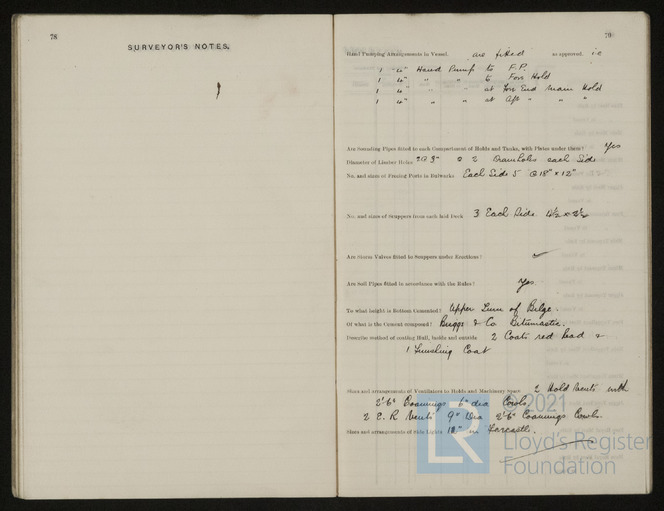 78
SURVEYOR'S NOTES.
79
Hand Pumping Arrangements in Vessel. are fitted as approved. i.e
1 4" Hand Pump to F.P.
1 4" " " to Fore Hold
1 4" " " at Fore End Main Hold
1 4" " " at Aft " " "
Are Sounding Pipes fitted to each Compartment of Holds and Tanks, with Plates under them? Yes
Diameter of Limber Holes 2 @ 3" @ 2 each Side
No. and sizes of Freeing Ports in Bulwarks Each Side 5 @ 18" x 12"
No. and sizes of Scuppers from each laid Deck 3 Each Side 4½ x 2½
Are Storm Valves fitted to Scuppers under Erections? ✓
Are Soil Pipes fitted in accordance with the Rules? Yes
To what height is Bottom Cemented? Upper Turn of Bilge.
Of what is the Cement composed? Briggs & Co Bitumastic.
Describe method of coating Hull, inside and outside 2 Coats red lead &
1 Finishing Coat
Sizes and arrangements of Ventilators to Holds and Machinery Space 2 Hold Vents with
2'6" Coamings 6" dia Cowls
2 E. R Vents 9" Dia 2'6" Coamings Cowls.
Sizes and arrangements of Side Lights 10" in Forecastle.
© 2021
LR
Lloyd's Register
Foundation